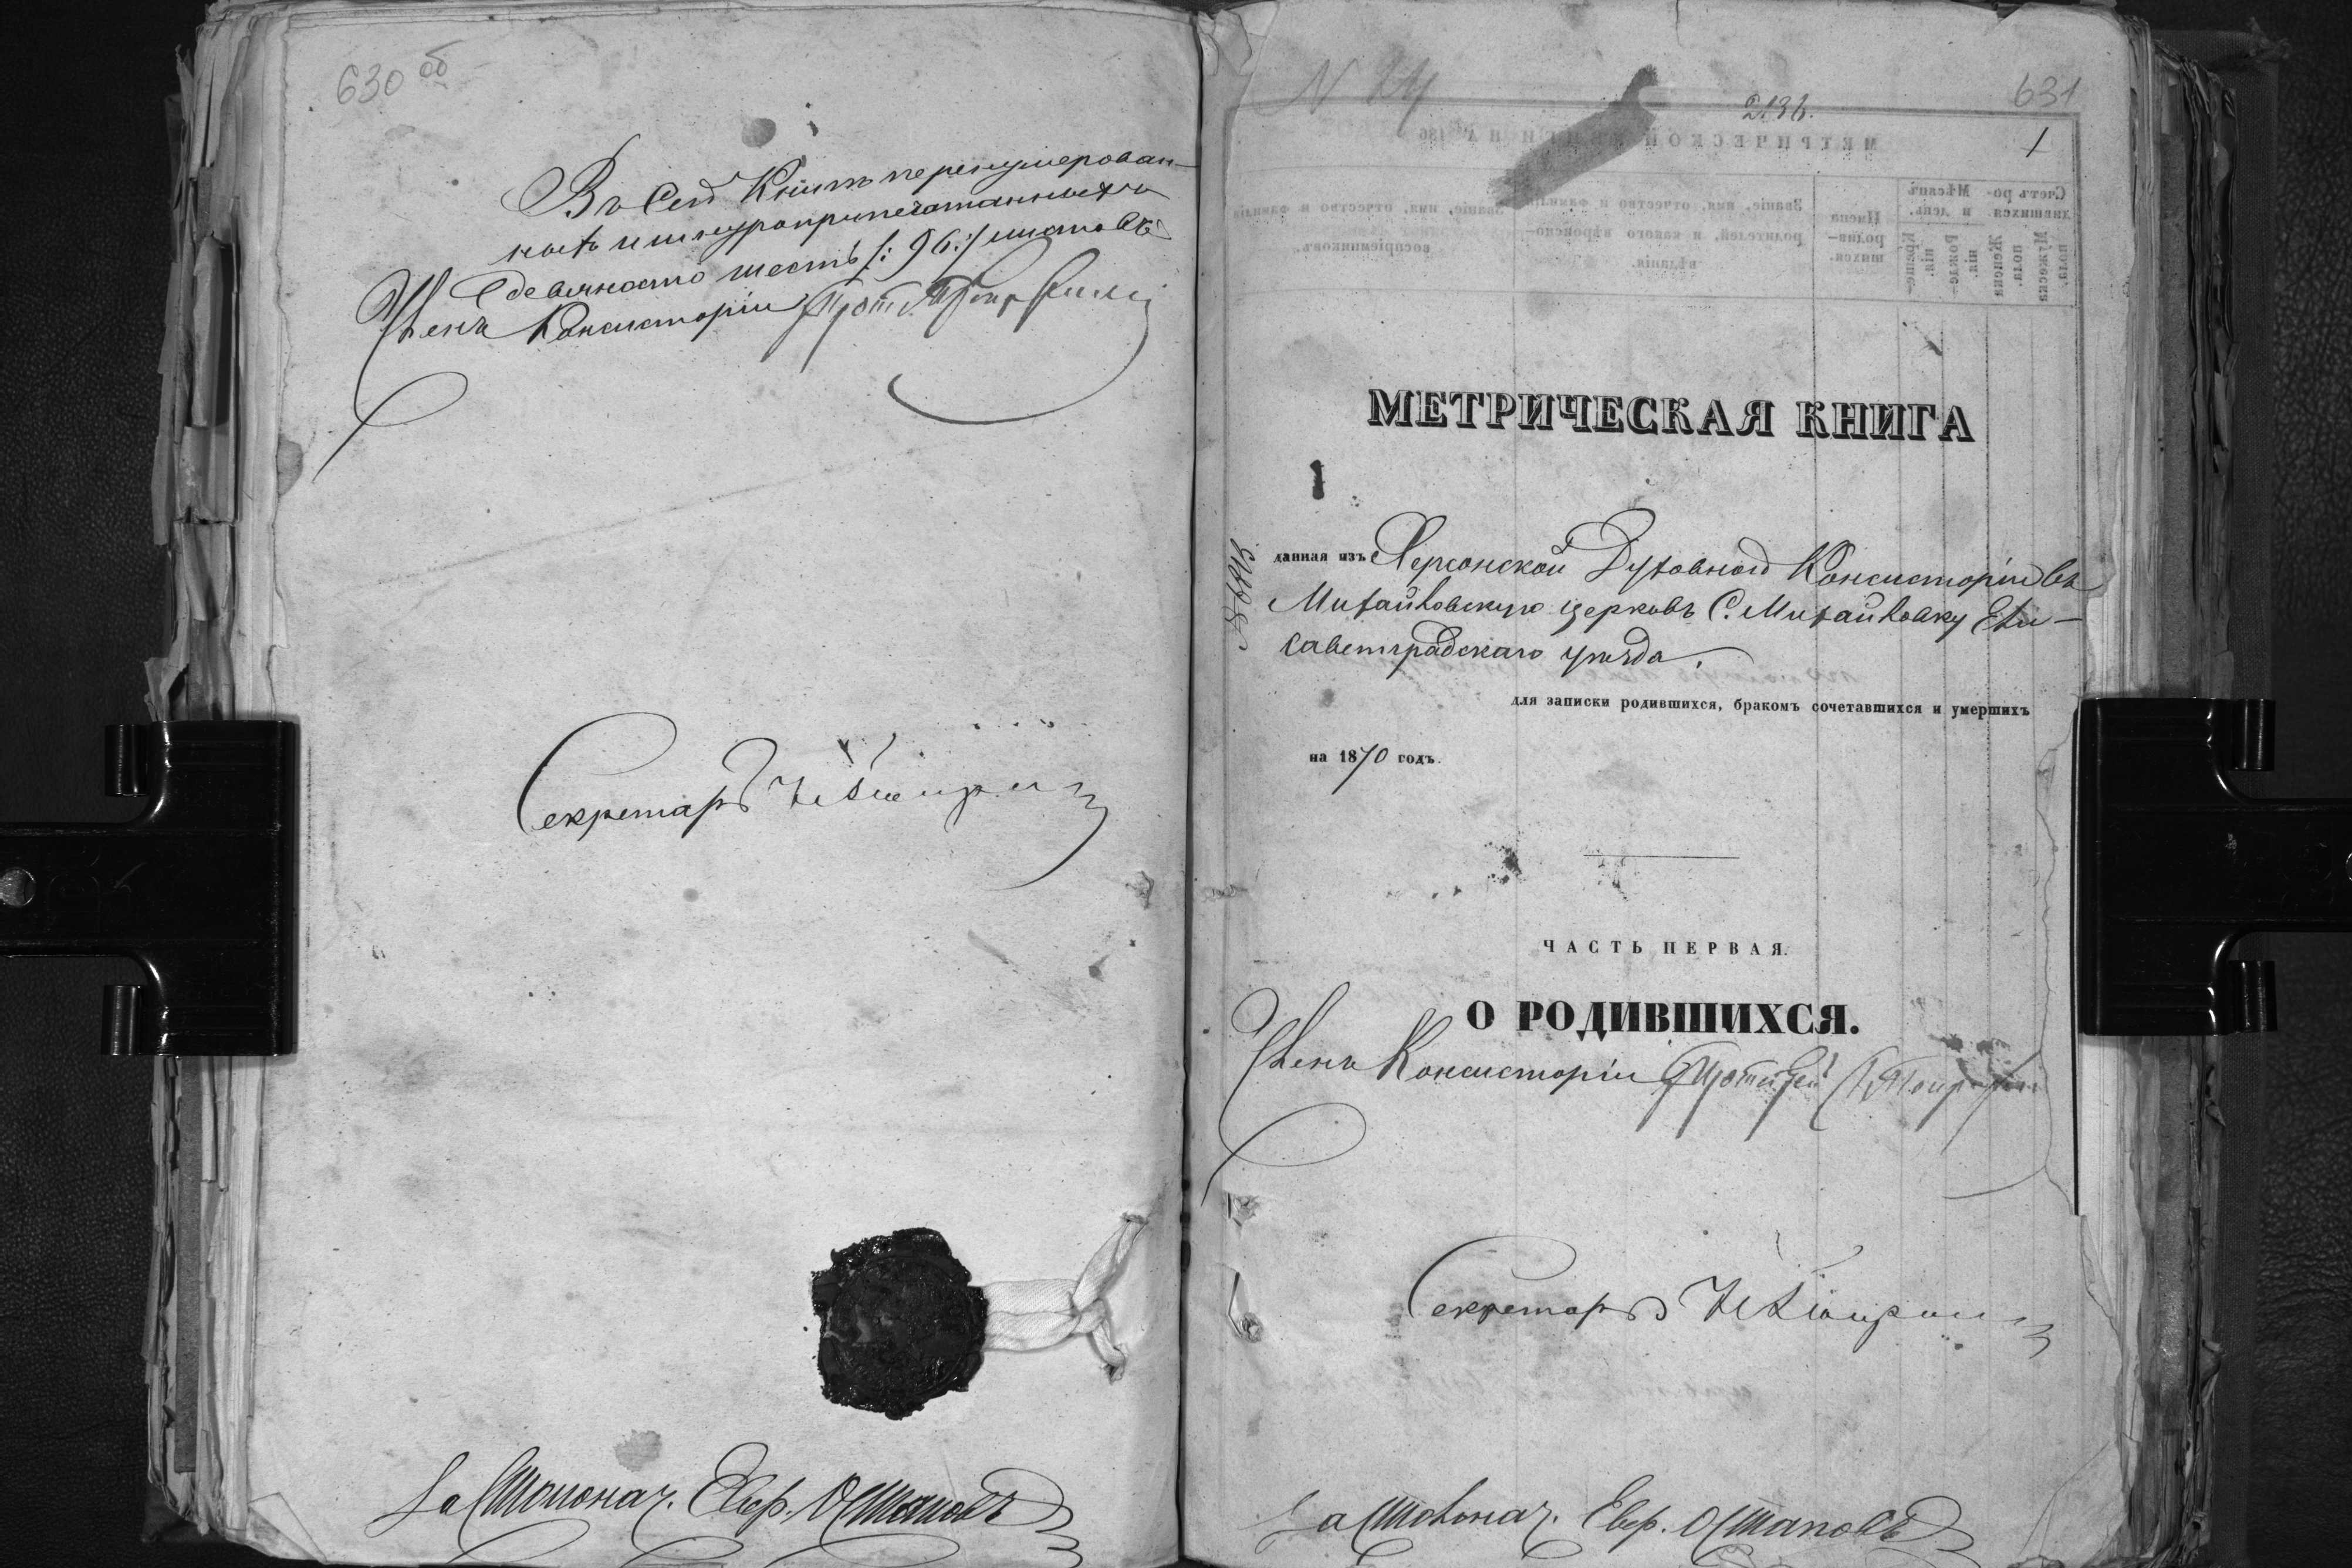 630 об
Въ сей Книгѣ перенумерован-
ныхъ и шнуроприпечатанныхъ
девяносто шесть /: 96 :/ листовъ
Членъ Консисторіи Прот.
Секретарь
За Столонач. Евф. Остаповъ
N 24
2136.
631
1
МЕТРИЧЕСКОЙ КНИГИ НА 186
Счетъ ро-
дившихся.
Мѣсяцъ
и день.
Имена
родив-
шихся.
Званіе, имя, отчество и фамилія
родителей, и какого вѣроиспо-
вѣданія.
Званіе, имя, отчество и фамилія
воспріемниковъ.
Мужеска
пола.
Женска
пола.
Рожде-
нія.
Креще-
нія.
МЕТРИЧЕСКАЯ КНИГА
данная изъ Херсонской Духовной Консисторіи въ
Михайловскую церковь С. Михайловку Ели-
саветградскаго уѣзда.
для записки родившихся, бракомъ сочетавшихся и умершихъ
на 1870 годъ.
ЧАСТЬ ПЕРВАЯ.
О РОДИВШИХСЯ.
Членъ Консисторіи Протоіерей
Секретарь
За Столонач. Евф. Остаповъ